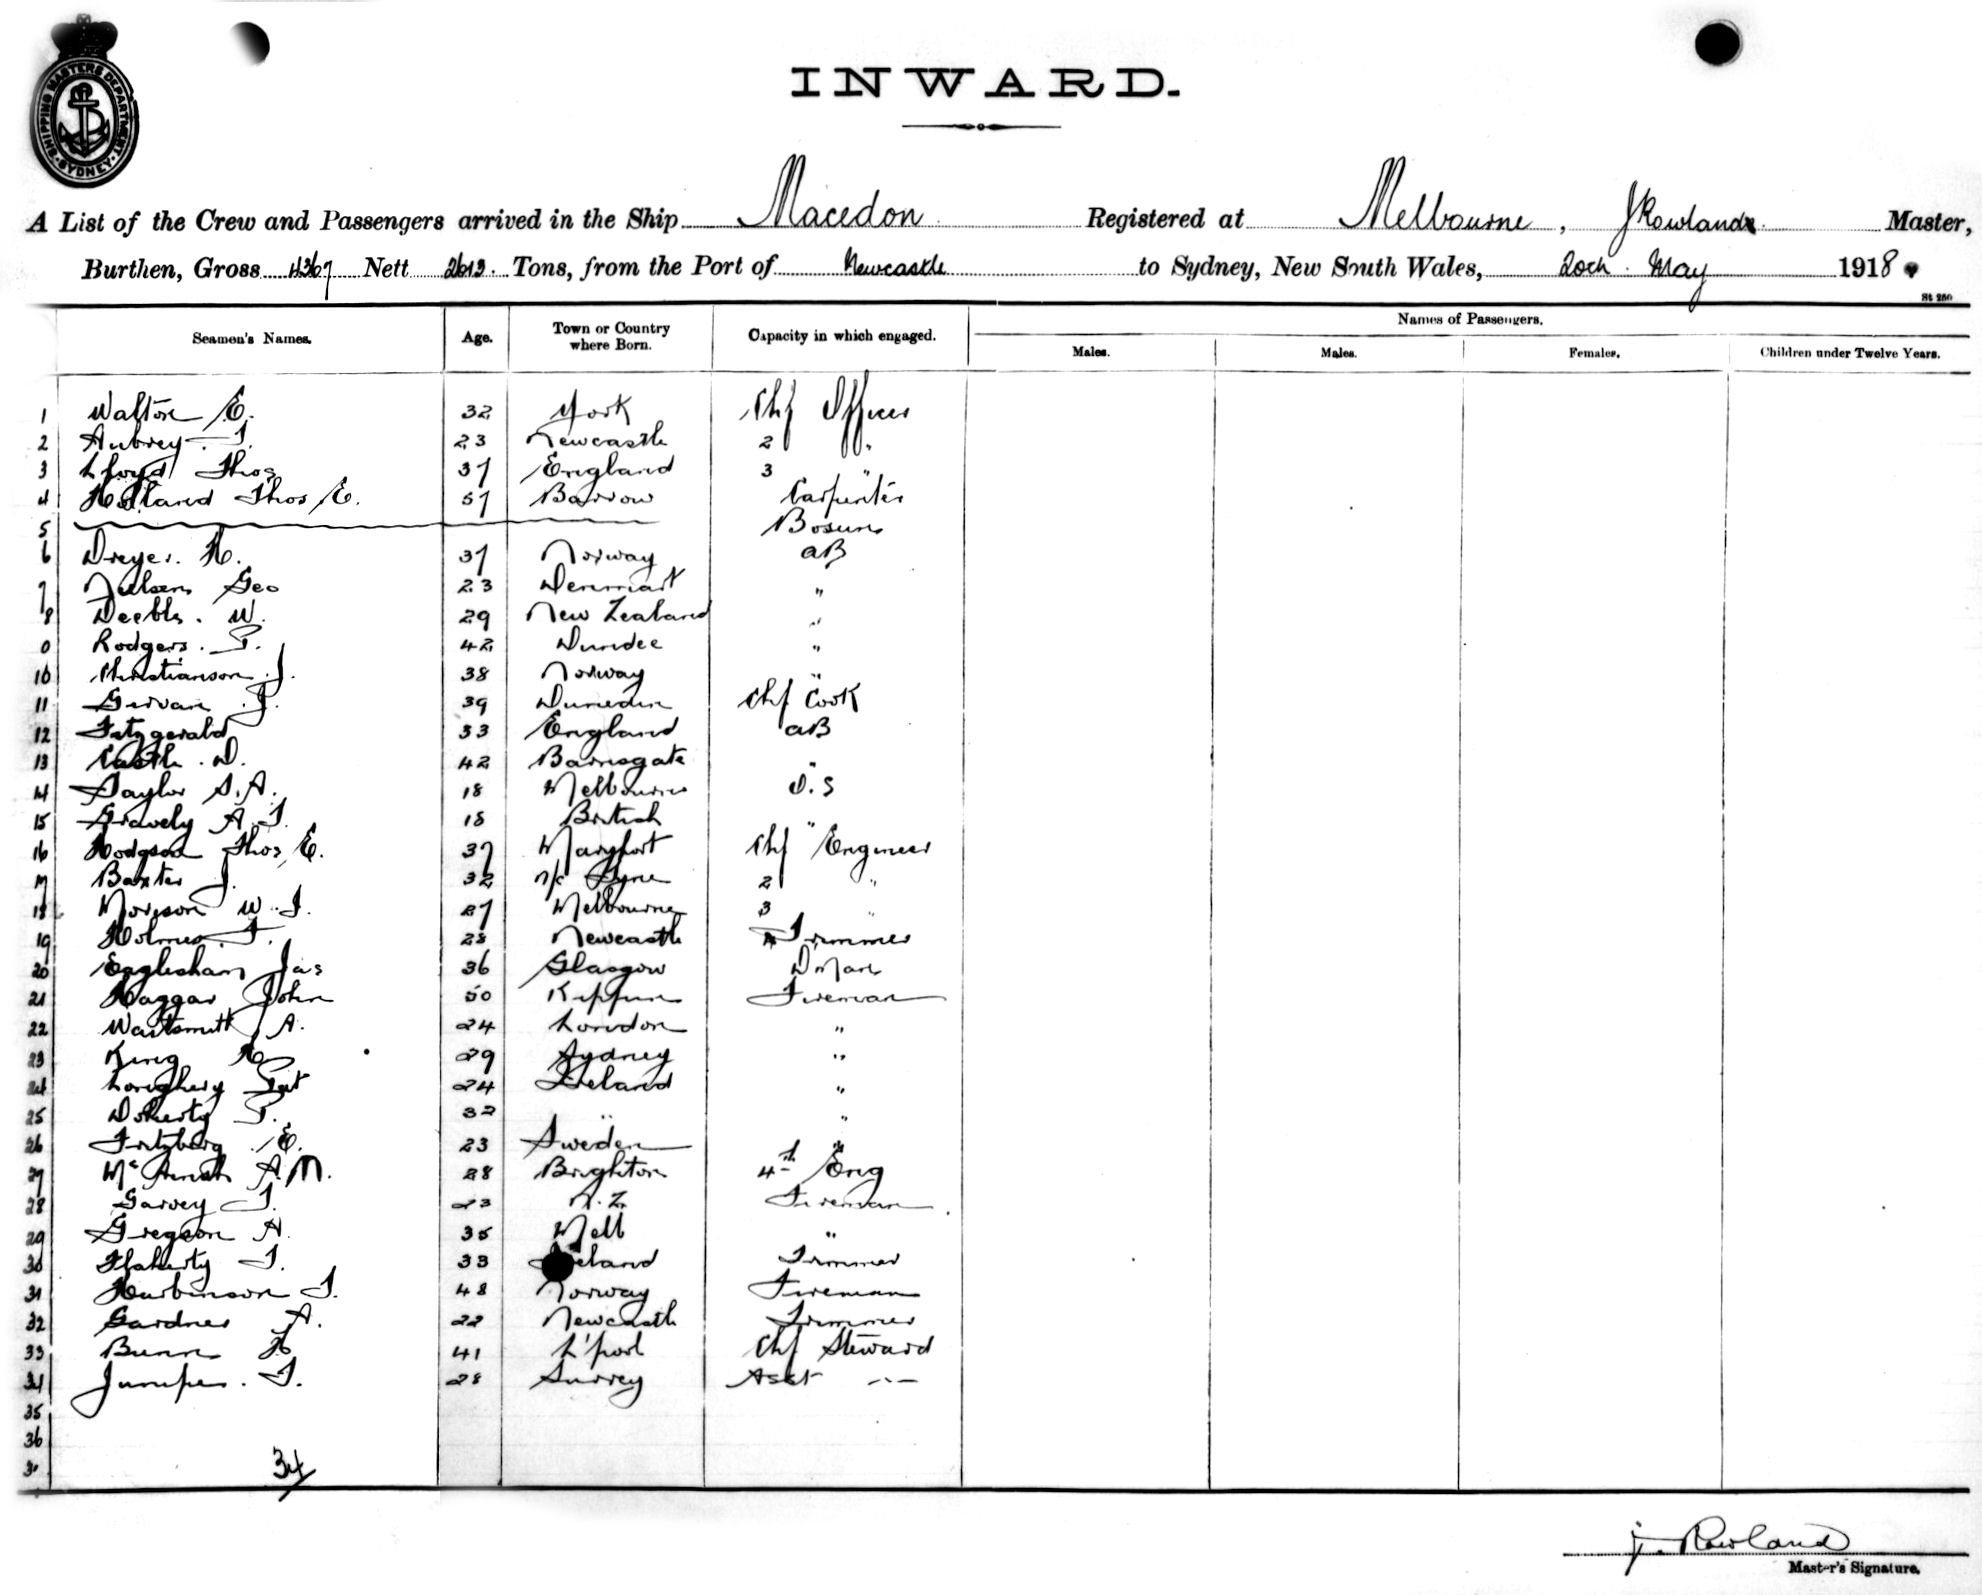 SHIPPING MASTERS DEPARTMENT SYDNEY
INWARD.
A List of the Crew and Passengers arrived in the Ship Macedon Registered at Melbourne, J Rowland Master,
Burthen, Gross 4367 Nett 2613. Tons, from the Port of Newcastle to Sydney, New South Wales, 20th May 1918
St 250
Seamen's Names. Age. Town or Country where Born. Capacity in which engaged. Names of Passengers.
Males. Males. Females. Children under Twelve Years.
1 Walton E. 32 York Chf Officer
2 Aubrey. T. 23 Newcastle 2 "
3 Lloyd Thos 37 England 3 "
4 Holland Thos E. 57 Barrow Carpenter
5 Bosun
6 Dreyer. H. 37 Norway AB
7 Neilsen Geo 23 Denmark "
8 Deeble. W. 29 New Zealand "
9 Rodgers. P. 42 Dundee "
10 Christianson. J. 38 Norway "
11 Girvan J. 39 Dunedin Chf Cook
12 Fitzgerald 33 England AB
13 Castle. D. 42 Barnsgate "
14 Taylor S. A. 18 Melbourne O.S
15 Gravely A. T. 18 British "
16 Hodgson Thos E. 37 Maryport Chf Engineer
17 Baxter J. 32 n/c Tyne 2 "
18 Morison W. J. 27 Melbourne 3 "
19 Holmes. T. 28 Newcastle Trimmer
20 Eaglesham Jas 36 Glasgow D Man
21 Haggar John 50 Kippen Fireman
22 A. 24 London "
23 King H 29 Sydney "
24 Loughery Pat 24 Ireland "
25 Doherty P. 32 " "
26 Fritzberg. E. 23 Sweden "
27 A. M. 28 Brighton 4th Eng
28 Garvey T. 23 N.Z. Fireman
29 Gregson A. 35 Melb "
30 Flaherty T. 33 Ireland Trimmer
31 Harbinson T. 48 Norway Fireman
32 Gardner A. 22 Newcastle Trimmer
33 Bunn H 41 L'pool Chf Steward
34 Juniper. T. 28 Surrey Asst "
35
36
34
J. Rowland
Master's Signature.